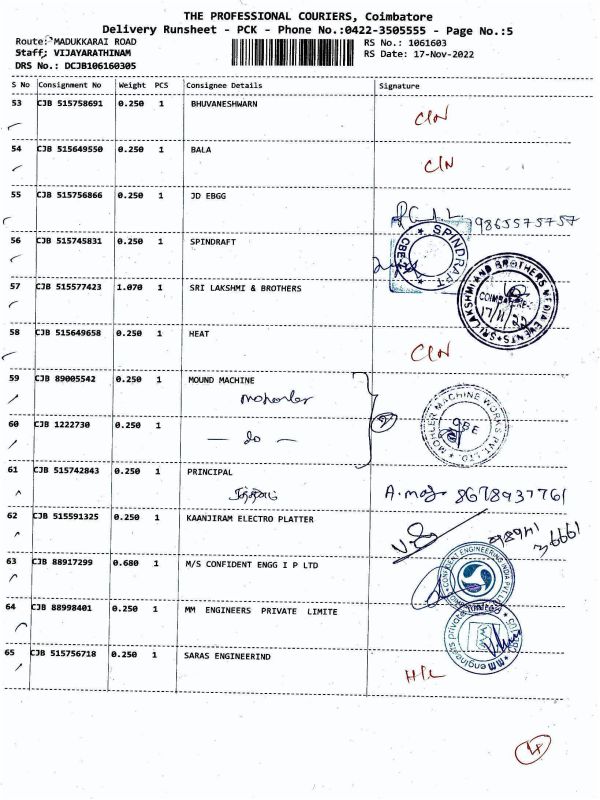 THE PROFESSIONAL COURIERS, Coimbatore
Delivery Runsheet - PCK - Phone No.:0422-3505555 - Page No.:5
Route: MADUKKARAI ROAD RS No.: 1061603
Staff: VIJAYARATHINAM RS Date: 17-Nov-2022
DRS No.: DCJB106160305
S No Consignment No Weight PCS Consignee Details Signature
53 CJB 515758691 0.250 1 BHUVANESHWARN
CIN
54 CJB 515649550 0.250 1 BALA
CIN
55 CJB 515756866 0.250 1 JD EBGG
9865575757
56 CJB 515745831 0.250 1 SPINDRAFT
SPINDRAFT CBE
57 CJB 515577423 1.070 1 SRI LAKSHMI & BROTHERS
SRI LAKSHMI AND BROTHERS
17/11/22
58 CJB 515649658 0.250 1 HEAT
CIN
59 CJB 89005542 0.250 1 MOUND MACHINE
Mohler
MOHLER MACHINE WORKS PVT. LTD
CBE
60 CJB 1222730 0.250 1
— do —
61 CJB 515742843 0.250 1 PRINCIPAL
8678937761
62 CJB 515591325 0.250 1 KAANJIRAM ELECTRO PLATTER
63 CJB 88917299 0.680 1 M/S CONFIDENT ENGG I P LTD
CONFIDENT ENGINEERING INDIA PVT LTD
64 CJB 88998401 0.250 1 MM ENGINEERS PRIVATE LIMITE
MM engineers private limited
65 CJB 515756718 0.250 1 SARAS ENGINEERIND